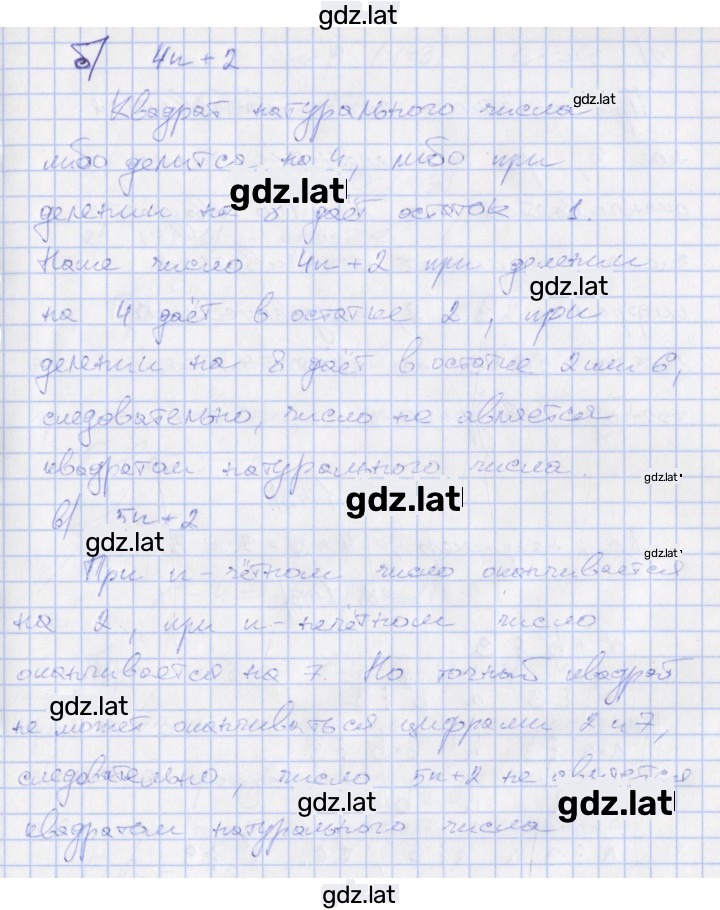 gdz.lat
б) 4n + 2
Квадрат натурального числа
gdz.lat
либо делится на 4, либо при
gdz.lat
делении на 8 даёт остаток 1.
Наше число 4n + 2 при делении
gdz.lat
на 4 даёт в остатке 2, при
делении на 8 даёт в остатке 2 или 6,
следовательно, число не является
квадратом натурального числа.
gdz.lat
gdz.lat
в) 5n + 2
gdz.lat
gdz.lat
При n - чётном число оканчивается
на 2, при n - нечётном число
оканчивается на 7. Но точный квадрат
gdz.lat
не может оканчиваться цифрами 2 и 7,
следовательно, число 5n+2 не является
gdz.lat
gdz.lat
квадратом натурального числа
gdz.lat